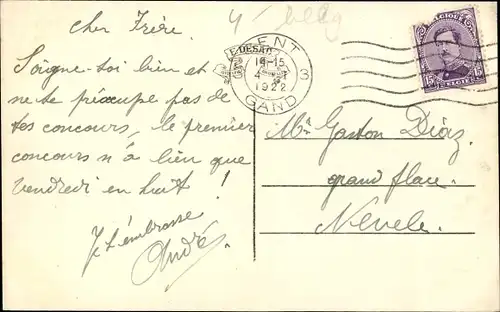 Cher Frère.
Soigne-toi bien et
ne te préocupe pas de
tes concours, le premier
concours n'a lieu que
vendredi en huit !
Je t'embrasse
André.
GENT
14-15
1922
GAND
3
BELGIQUE
15 15
BELGIË
Mr Gaston Diaz
grand place.
Nevele.